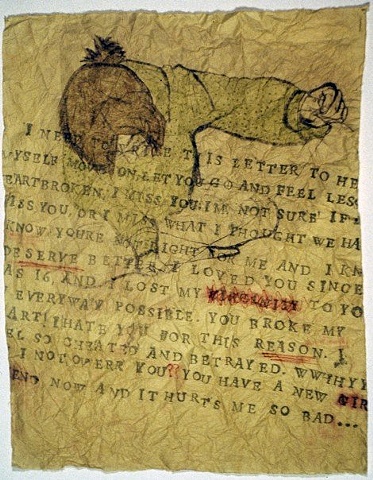 I NEED TO WRITE THIS LETTER TO HE
MYSELF MOVE ON, LET YOU GO AND FEEL LESS
HEARTBROKEN. I MISS YOU. I'M NOT SURE IF I
MISS YOU, OR I MISS WHAT I THOUGHT WE HA
KNOW YOU'RE NOT RIGHT FOR ME AND I KN
DESERVE BETTER. I LOVED YOU SINCE
AS 16, AND I LOST MY VIRGINITY TO YO
EVERYWAY POSSIBLE. YOU BROKE MY
ART! I HATE YOU FOR THIS REASON. I
EL SO CHEATED AND BETRAYED. WWHHYY
I NOT OVERR YOU?? YOU HAVE A NEW GIR
END NOW AND IT HURTS ME SO BAD...